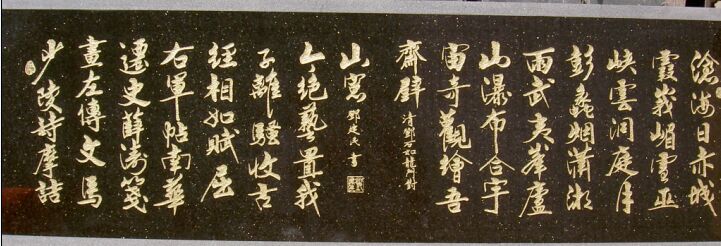 滄海日赤城
霞峩嵋雪巫
峽雲洞庭月
彭蠡烟瀟湘
雨武夷峯廬
山瀑布合宇
宙奇觀繪吾
齋壁 清鄧石如龍門對
少陵詩摩詰
畫左傳文馬
遷史薛濤箋
右軍帖南華
經相如賦屈
子離騷收古
今絕藝置我
山窗 鄧建民書